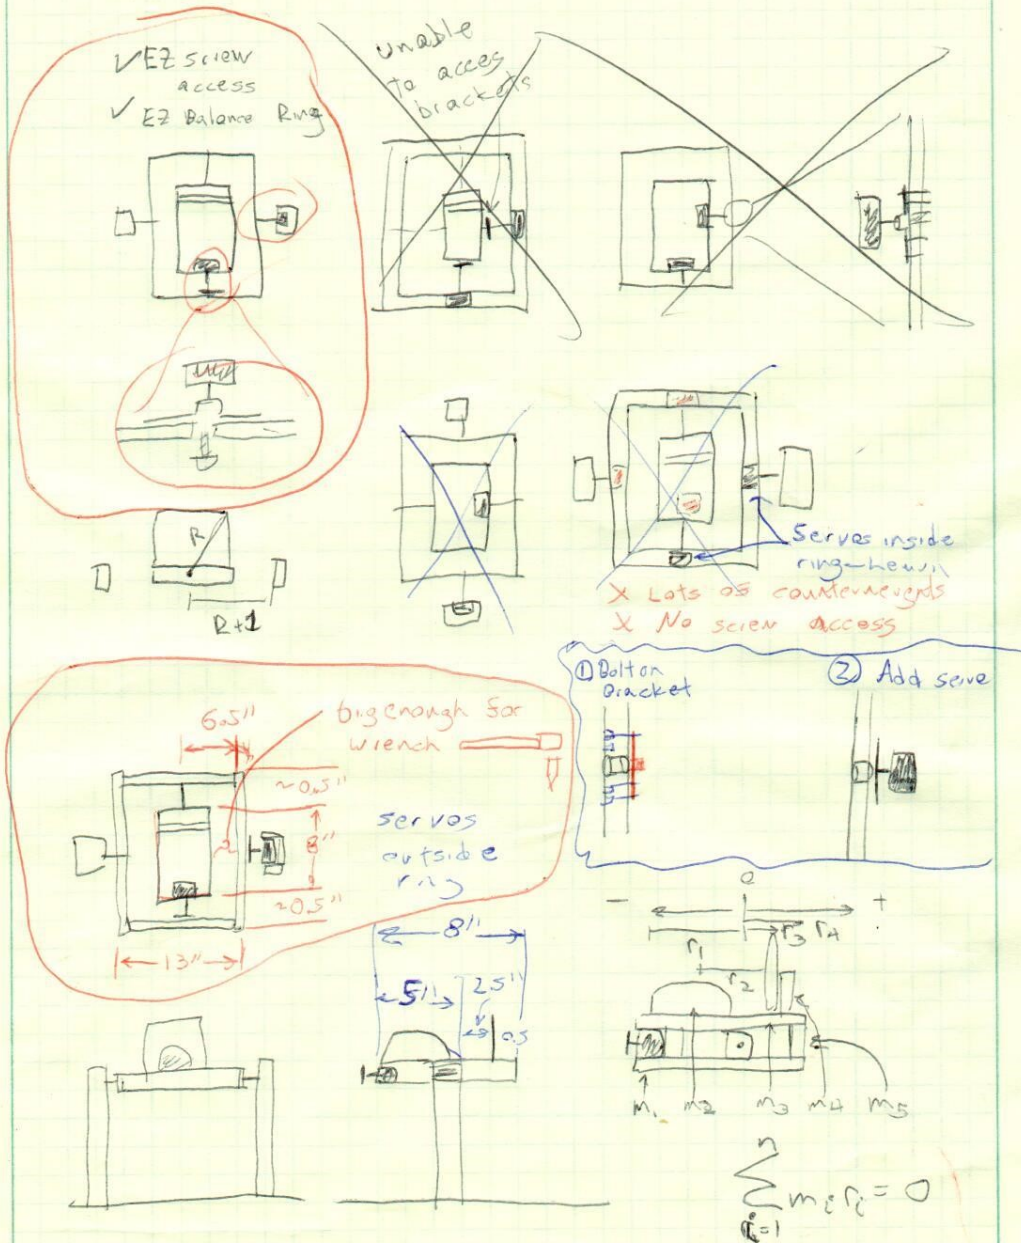 ✓ EZ screw
access
✓ EZ Balance Ring
unable
to acces
brackets
R
R+1
Servos inside
ring-heavy
X Lots of counterweights
X No screw Access
① Bolt on
Bracket
② Add servo
6.5"
big enough for
wrench
~0.5"
8"
~0.5"
13"
servos
outside
ring
8"
5"
2.5"
0.5
- 0 +
r1
r2
r3 r4
m1 m2 m3 m4 m5
n
∑ mi ri = 0
i=1